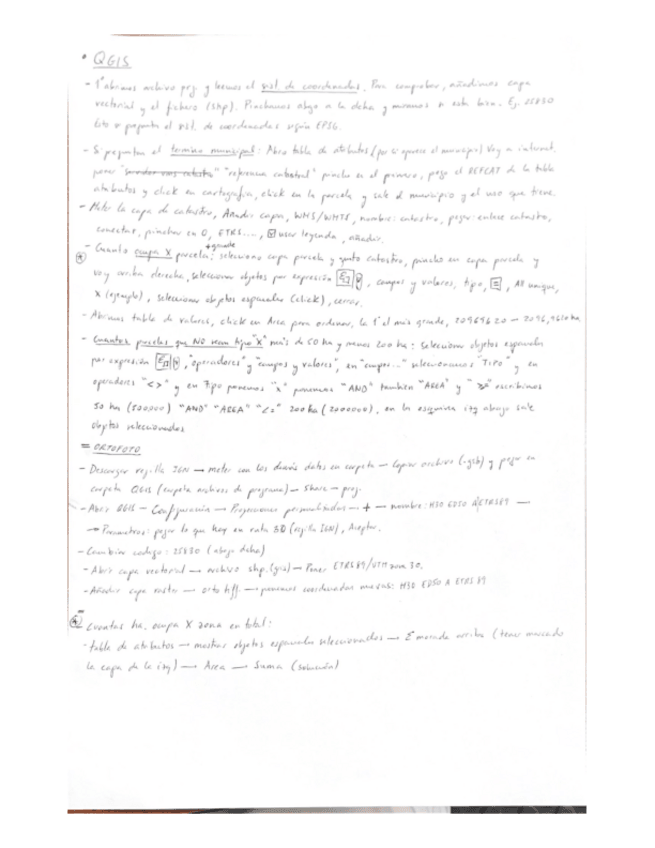 • QGIS
- 1º abrimos archivo prj. y leemos el sist. de coordenadas. Para comprobar, añadimos capa
vectorial y el fichero (shp). Pinchamos abajo a la dcha y miramos si esta bien. Ej. 25830
Esto si pregunta el sist. de coordenadas según EPSG.
- Si preguntan el termino municipal: Abro tabla de atributos (por si aparece el municipio) Voy a internet.
poner "referencia catastral" pincho en el primero, pego el REFCAT de la tabla
atributos y click en cartografía, click en la parcela y sale el municipio y el uso que tiene.
- Meter la capa de catastro, Añadir capa, WMS/WMTS, nombre: catastro, pegar: enlace catastro,
conectar, pinchar en 0, ETRS..., ☑ usar leyenda, añadir.
+ grande
- Cuanto ocupa X parcela: selecciono capa parcela y quito catastro, pincho en capa parcela y
voy arriba derecha, seleccionar objetos por expresión, campos y valores, tipo, =, All unique,
X (ejemplo), seleccionar objetos espaciales (click), cerrar.
- Abrimos tabla de valores, click en Area para ordenar, la 1ª el más grande, 20969620 - 2096,9620 ha.
- Cuantas parcelas que NO sean tipo "X" más de 50 ha y menos 200 ha: seleccionar objetos espaciales
por expresión, "operadores" y "campos y valores", en "campos..." seleccionamos "TIPO" y en
operadores "<>" y en Tipo ponemos "x" ponemos "AND" también "AREA" y escribimos
50 ha (500000) "AND" "AREA" "<=" 200 ha (2000000). en la esquina izq abajo sale
objetos seleccionados
= ORTOFOTO
- Descargar rejilla IGN → meter con los demás datos en carpeta - Copiar archivo (.gsb) y pegar en
carpeta QGIS (carpeta archivos de programa) - Share - proj.
- Abrir QGIS - Configuración - Proyecciones personalizadas - + - nombre: H30 ED50 A ETRS89 -
→ Parametros: pegar lo que hay en (rejilla IGN), Aceptar.
- Cambiar codigo: 25830 (abajo dcha)
- Abrir capa vectorial → archivo shp. - Poner ETRS89/UTM zona 30.
- Añadir capa raster - orto tiff. - ponemos coordenadas nuevas: H30 ED50 A ETRS89
Cuantas ha. ocupa X zona en total:
- tabla de atributos - mostrar objetos espaciales seleccionados - Σ morada arriba (tener marcado
la capa de la izq) → Area → Suma (solución)